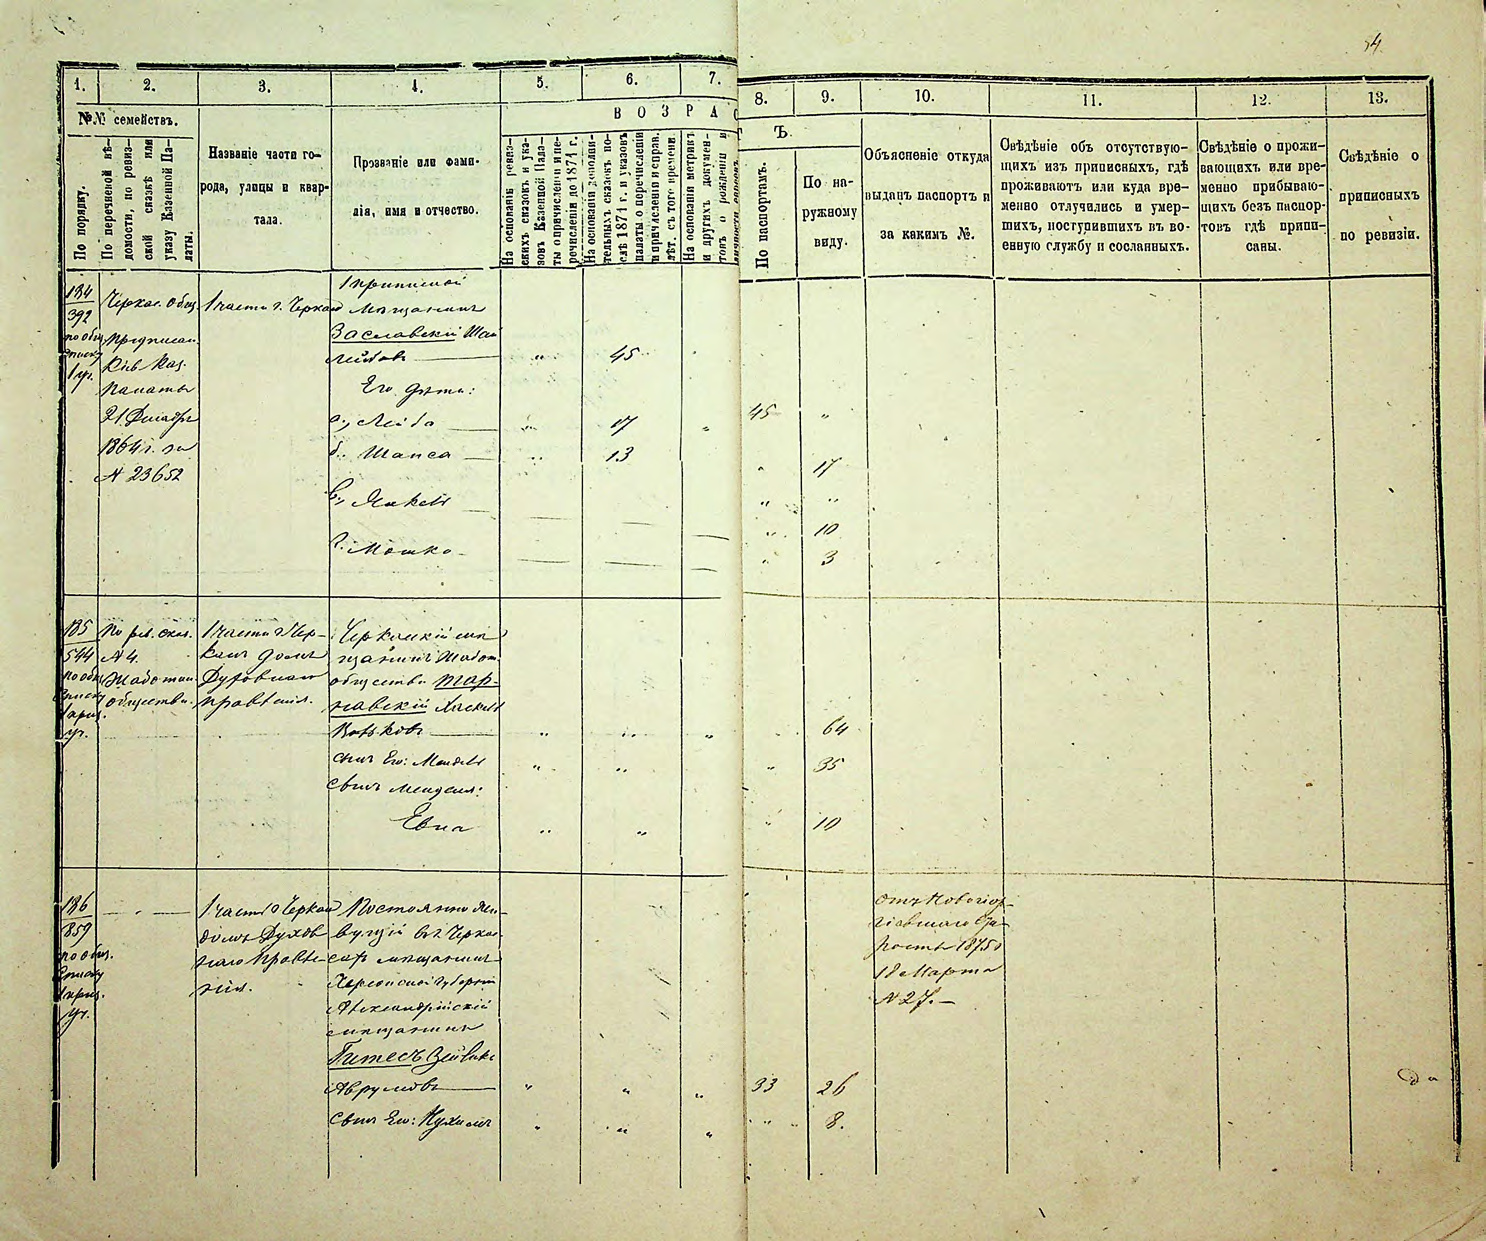 54
1.
2.
3.
4.
5.
6.
7.
8.
9.
10.
11.
12.
13.
№№ семействъ.
По порядку.
По перечневой вѣ-
домости, по ревиз-
ской сказкѣ или
указу Казенной Па-
латы.
Названіе части го-
рода, улицы и квар-
тала.
Прозваніе или фами-
лія, имя и отчество.
ВОЗРАС
ТЪ.
На основаніи ревиз-
скихъ сказокъ и ука-
зовъ Казенной Пала-
ты о причисленіи и пе-
речисленіи до 1874 г.
На основаніи дополни-
тельныхъ сказокъ по-
слѣ 1874 г. и указовъ
палаты о перечисленіи
и причисленіи и справ.
лѣт. съ того времени.
На основаніи метрикъ
и другихъ докумен-
товъ о рожденіи и
По паспортамъ.
По на-
ружному
виду.
Объясненіе откуда
выданъ паспортъ и
за какимъ №.
Свѣдѣніе объ отсутствую-
щихъ изъ приписныхъ, гдѣ
проживаютъ или куда вре-
менно отлучились и умер-
шихъ, поступившихъ въ во-
енную службу и сосланныхъ.
Свѣдѣніе о прожи-
вающихъ или вре-
менно прибываю-
щихъ безъ паспор-
товъ гдѣ припи-
саны.
Свѣдѣніе о
приписныхъ
по ревизіи.
184
392
по общ.
списку
1 уч.
Черкас. общ.
Предписан.
Кіев. Каз.
Палаты
21 Декабря
1864 г. за
№ 23652
1 части г. Черкас
Мѣщанинъ
Заславскій
Лейбовъ — „ 45
Его дѣти:
45 „
а., Лейба — „ 17 „
б., Шапса — „ 13
„ 17
в., Янкель —
„ „
„ 10
г. Мошко —
„ 3
185
544
по общ.
списку
уч.
По рев. сказ.
№ 4.
Жаботин.
общества.
1 части г. Чер-
касъ домъ
Духовнаго
правленія.
Черкаскій мѣ-
щанинъ Жабот.
общества Тар-
навскій Хаскель
— „ „ „ 64
сынъ Его: Мендель „ „ „ 35
сынъ Менделя:
„ „ „ 10
186
859
по общ.
списку
уч.
— „ —
1 части г. Черкас
домъ Духов
наго Правле-
нія.
Постоянно жи-
вущій въ Черкас-
сахъ мѣщанинъ
Херсонской губерніи
Александрійскій
мѣщанинъ
Гитесъ
Аврумовъ — „ „ „ 33 26
сынъ Его: Нухимъ „ „ „ „ 8.
отъ Новогеор-
гіевскаго
1875
18 Марта
№ 27. —